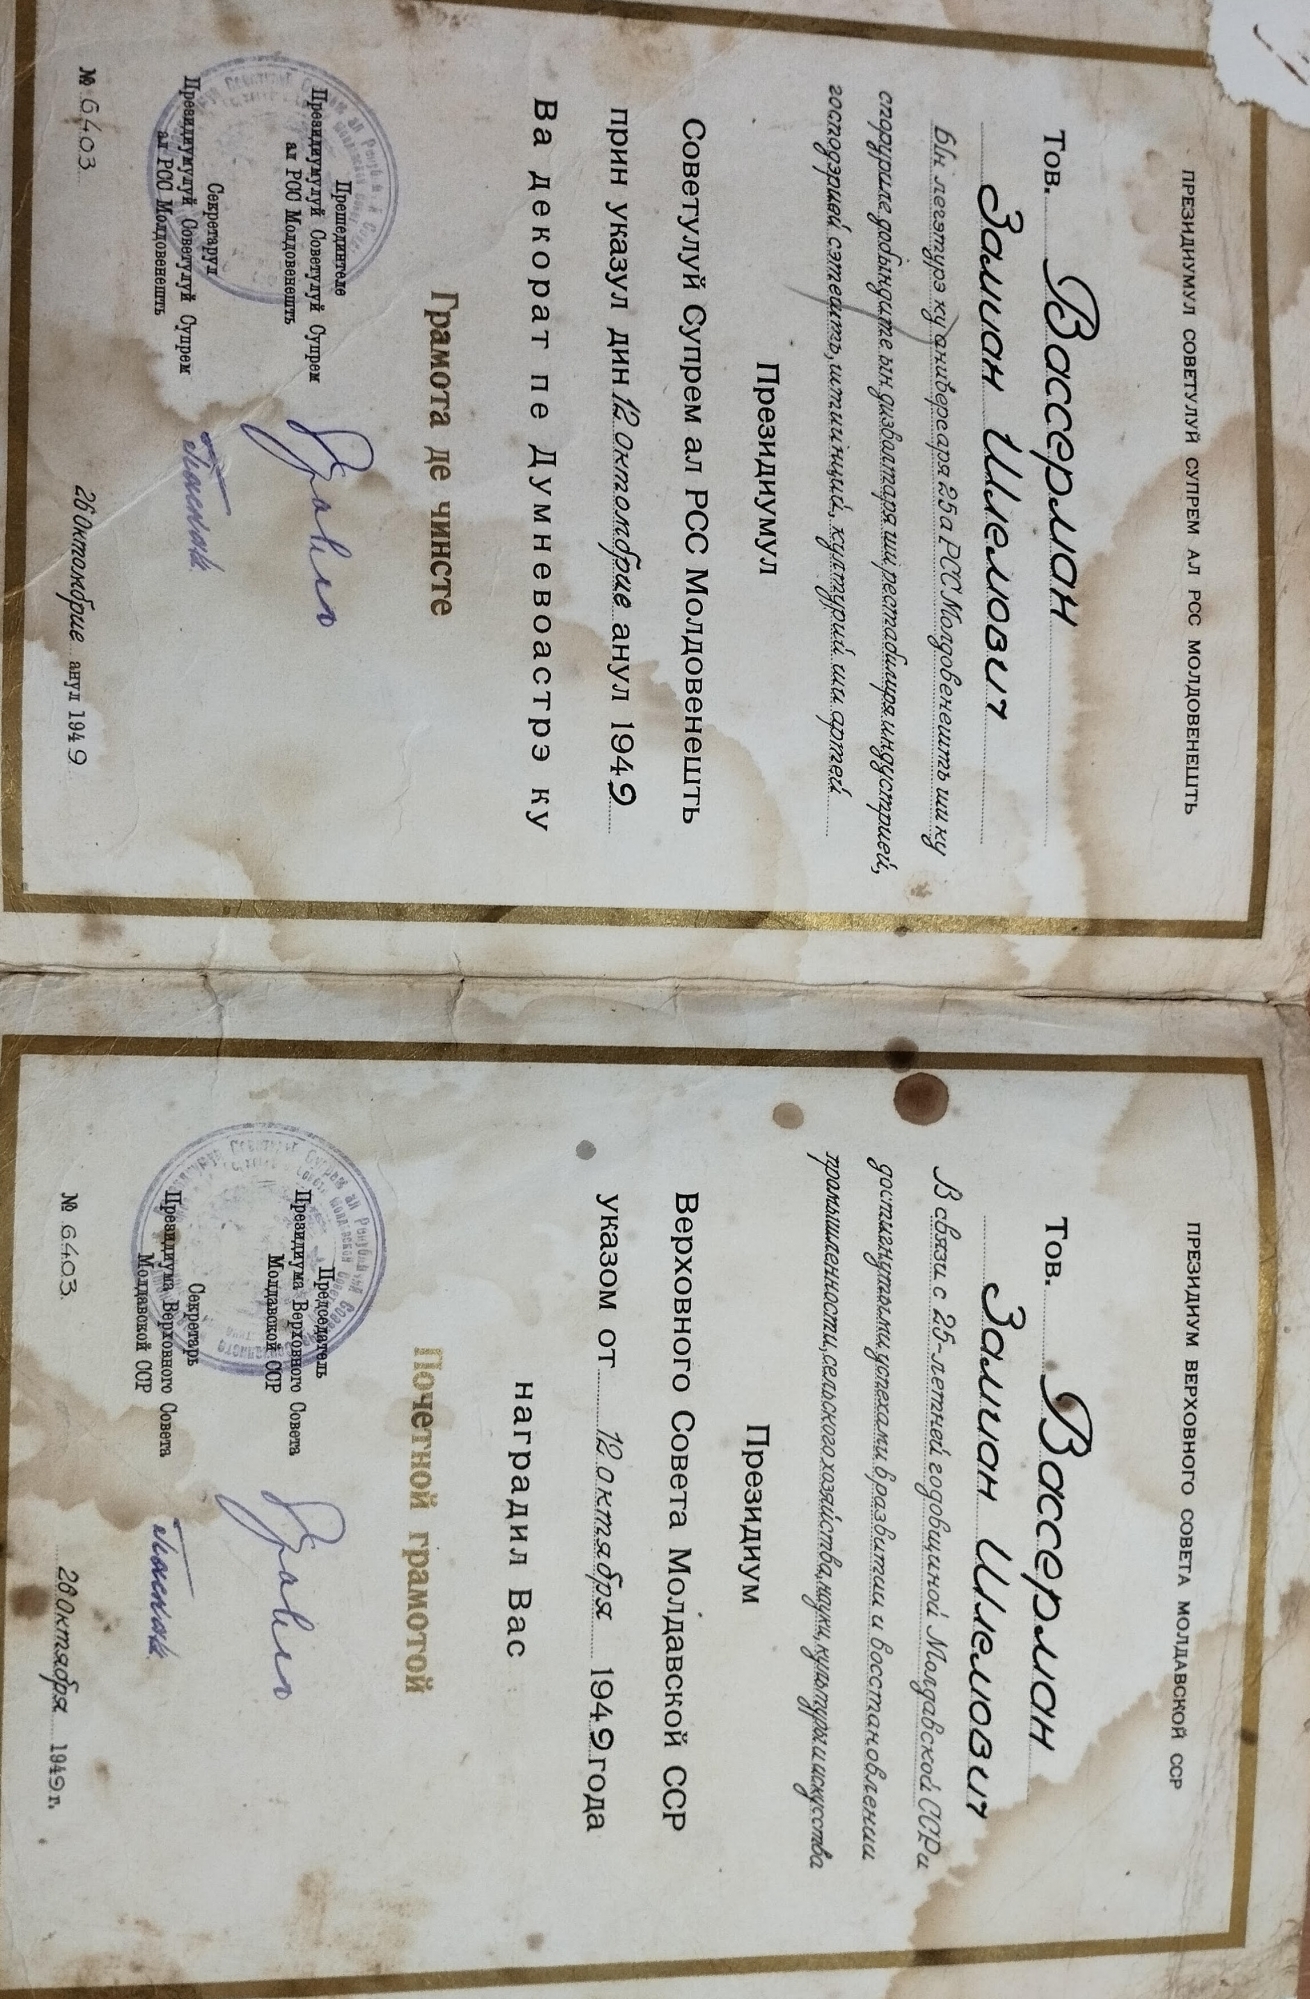 ПРЕЗИДИУМУЛ СОВЕТУЛУЙ СУПРЕМ АЛ РСС МОЛДОВЕНЕШТЬ
Тов. Вассерман
Залман Шлемович
Ын легэтурэ ку аниверсаря 25 а РСС Молдовенешть ши ку
спориле добындите ын дизволтаря ши рестабилиря индустрией,
господэрией сэтешть, штиинций, културий ши артей
Президиумул
Советулуй Супрем ал РСС Молдовенешть
прин указул дин 12 октомбрие анул 1949
Ва декорат пе Думневоастрэ ку
Грамота де чинсте
Прешединтеле
Президиумулуй Советулуй Супрем
ал РСС Молдовенешть
Секретарул
Президиумулуй Советулуй Супрем
ал РСС Молдовенешть
№ 6403
26 Октомбрие анул 1949
ПРЕЗИДИУМ ВЕРХОВНОГО СОВЕТА МОЛДАВСКОЙ ССР
Тов. Вассерман
Залман Шлемович
В связи с 25-летней годовщиной Молдавской ССР и
достигнутыми успехами в развитии и восстановлении
промышленности, сельского хозяйства, науки, культуры и искусства
Президиум
Верховного Совета Молдавской ССР
указом от 12 октября 1949 года
наградил Вас
Почетной грамотой
Председатель
Президиума Верховного Совета
Молдавской ССР
Секретарь
Президиума Верховного Совета
Молдавской ССР
№ 6403.
26 Октября 1949 г.